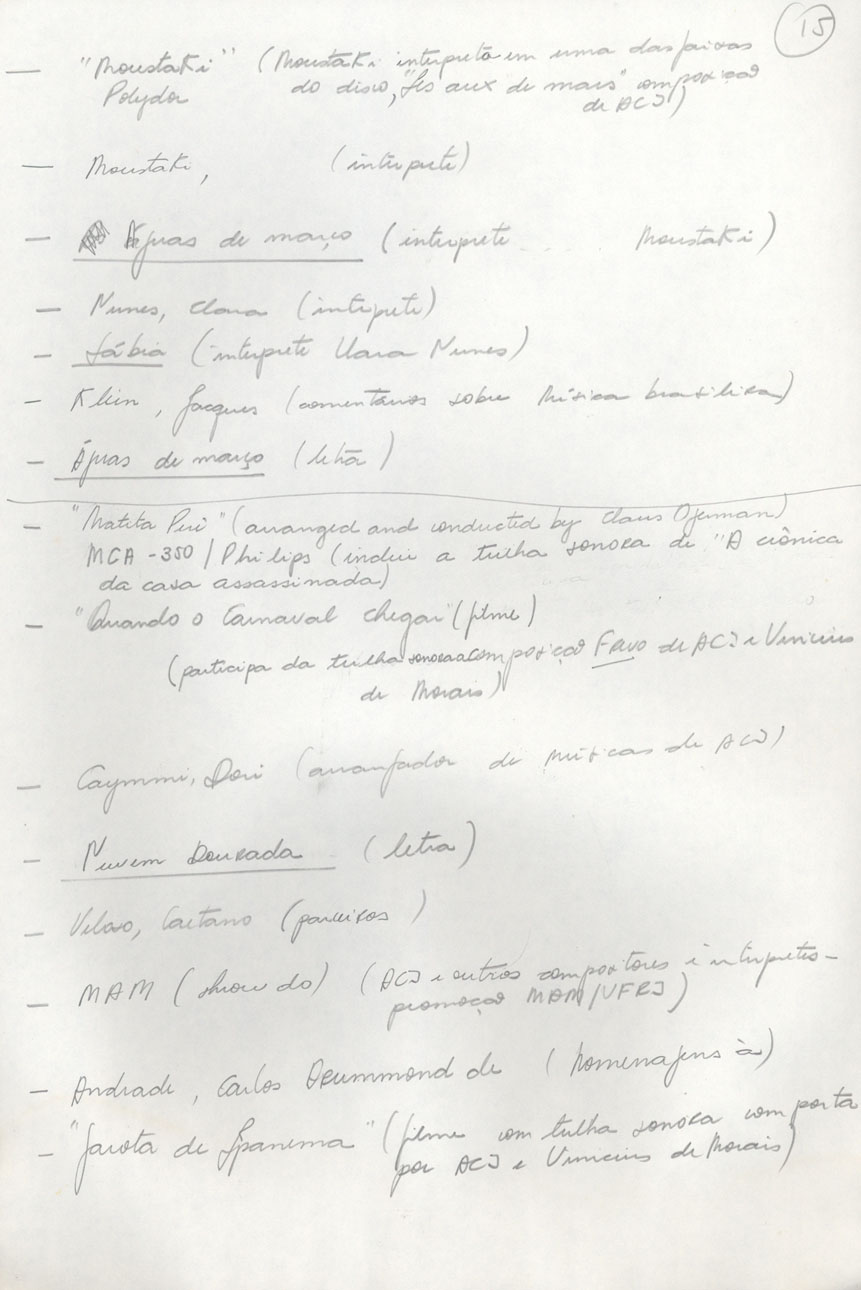 15
— "Moustaki" (Moustaki interpreta em uma das faixas
Polydor do disco, "Les aux de mars" composição
de ACJ)
— Moustaki, (intérprete)
— Águas de março (intérprete Moustaki)
— Nunes, Clara (intérprete)
— Sábia (intérprete Clara Nunes)
— Klein, Jacques (comentários sobre Música brasileira)
— Águas de março (letra)
— "Matita Peri" (arranged and conducted by Claus Ogerman)
MCA-350 / Philips (inclui a trilha sonora de "A crônica
da casa assassinada)
— "Quando o Carnaval chegar" (filme)
(participa da trilha sonora a composição Frevo de ACJ e Vinicius
de Morais)
— Caymmi, Dori (arranjador de músicas de ACJ)
— Nuvem Dourada (letra)
— Veloso, Caetano (parceiros)
— MAM (show do) (ACJ e outros compositores e intérpretes -
promoção MAM/UFRJ)
— Andrade, Carlos Drummond de (homenagens à)
— "Garota de Ipanema" (filme com trilha sonora composta
por ACJ e Vinicius de Morais)